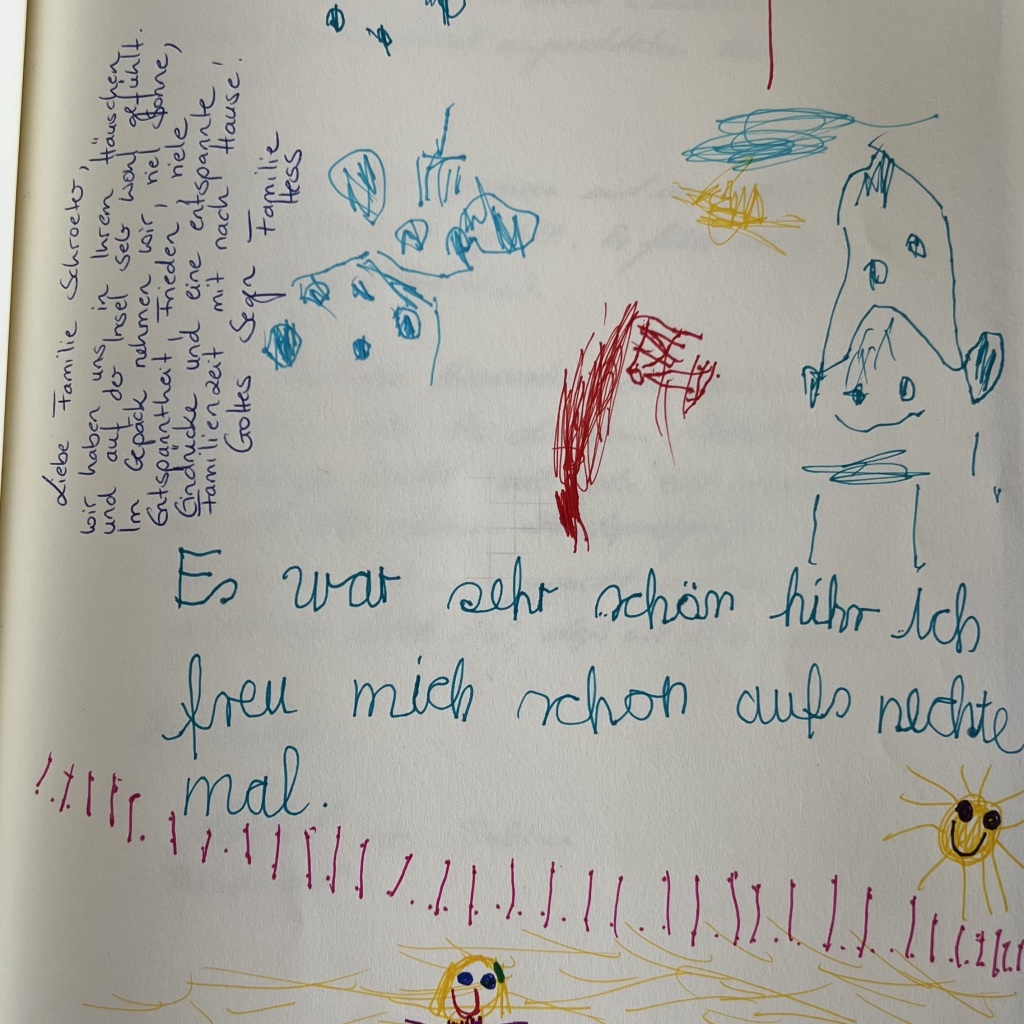 Liebe Familie Schroeter,
wir haben uns in Ihrem Häuschen
und auf der Insel sehr wohl gefühlt.
Im Gepäck nehmen wir viel Sonne,
Entspanntheit, Frieden, viele
Eindrücke und eine entspannte
Familienzeit mit nach Hause!
Gottes Segn Familie
Hess
Es war sehr schön hihr ich
freu mich schon aufs nechte
mal.